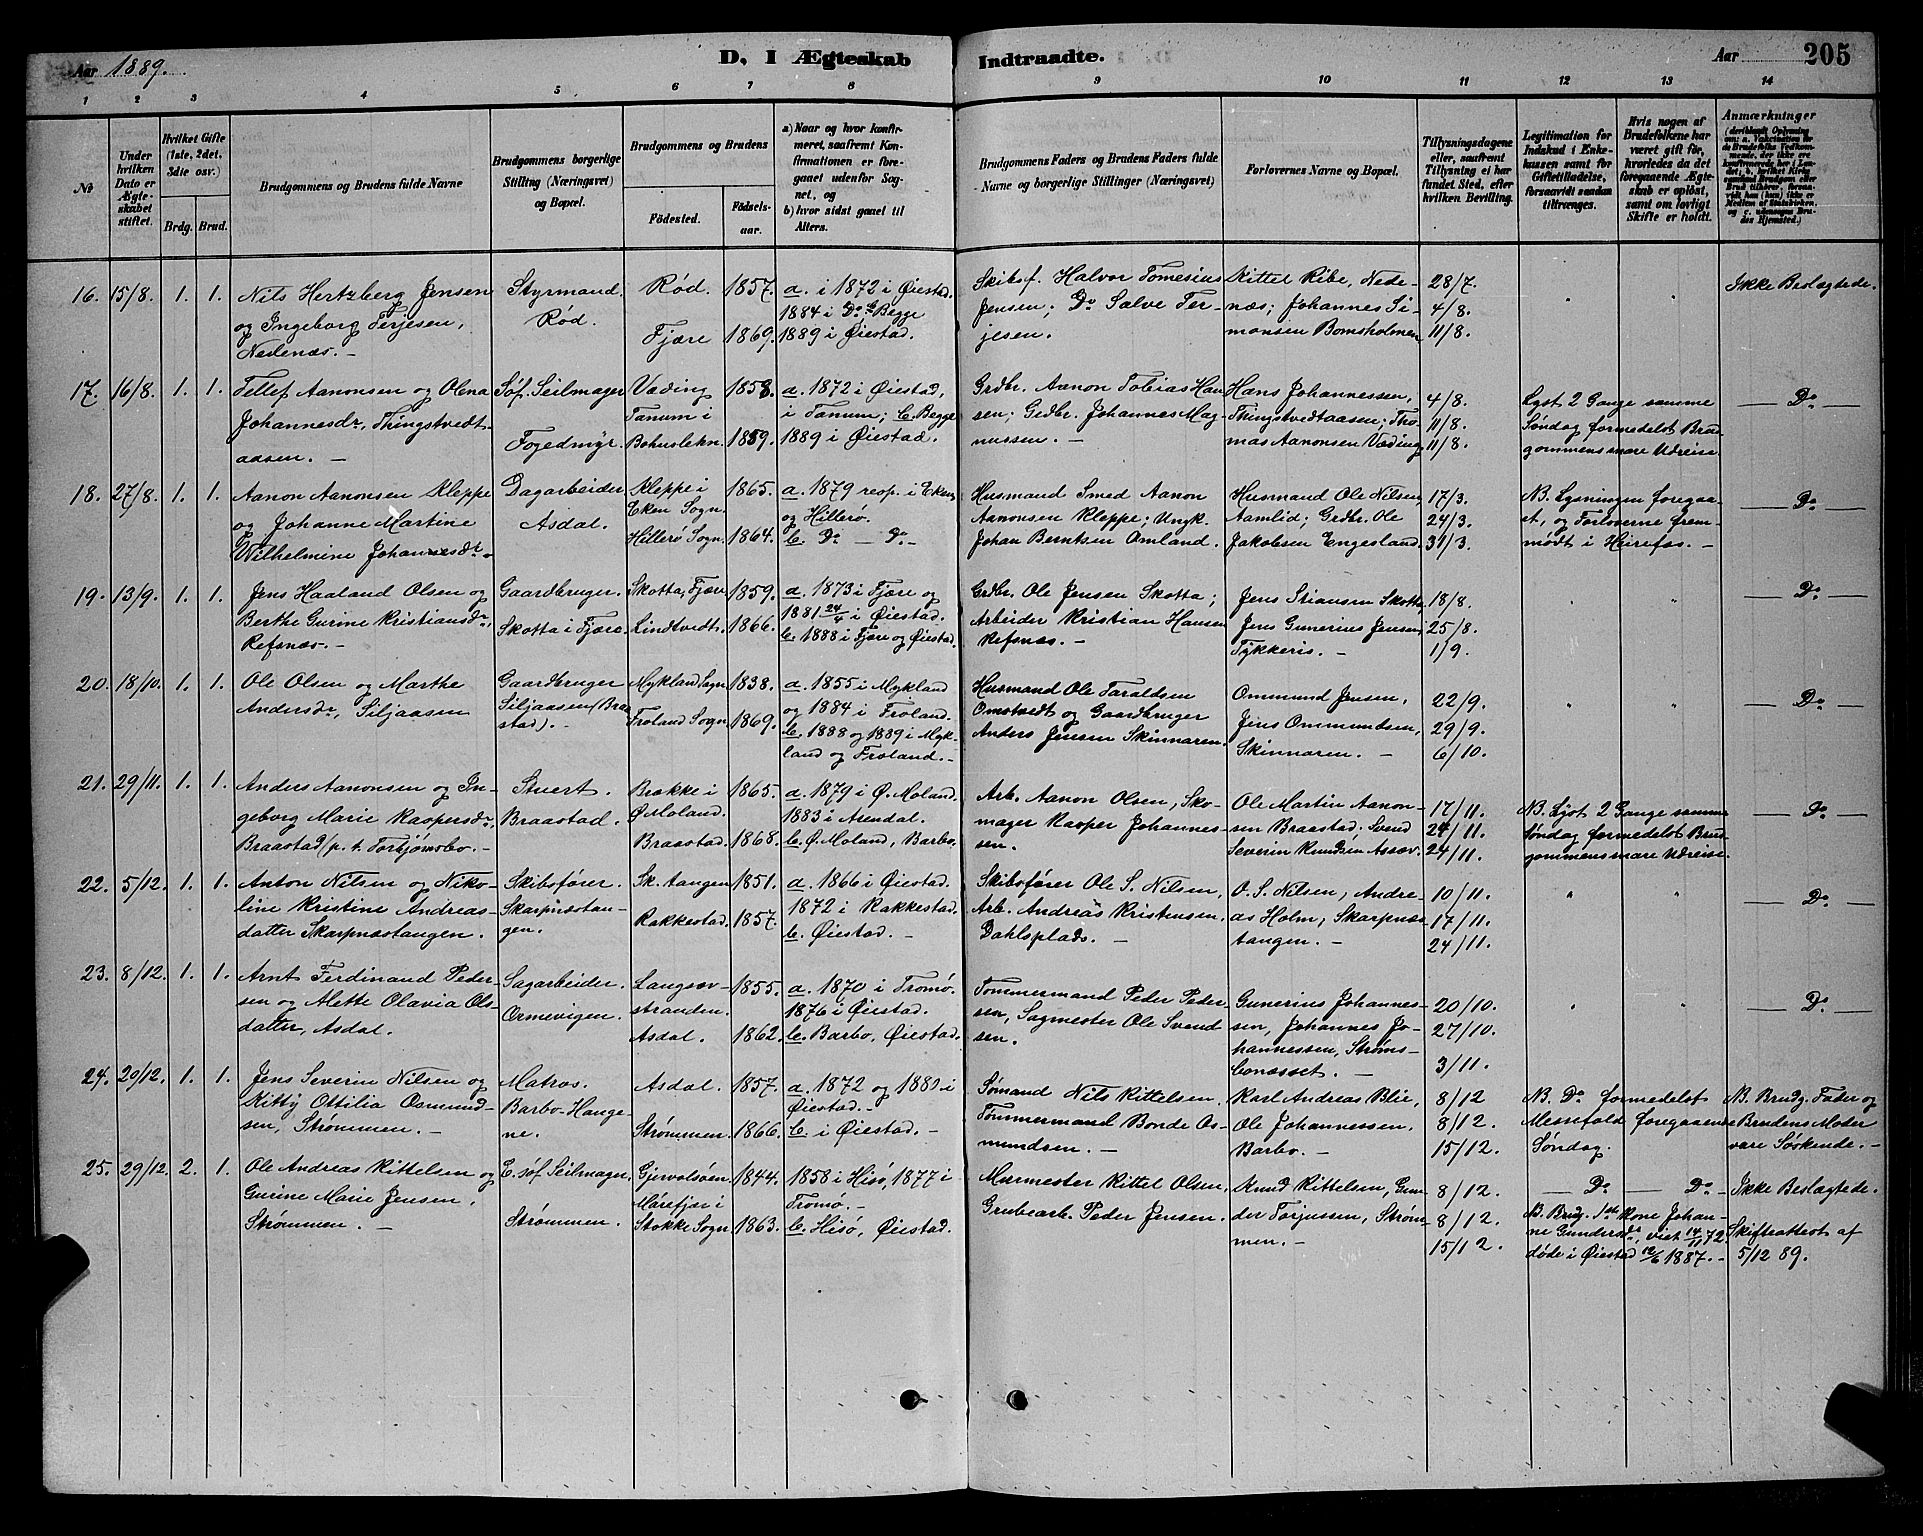 Aar 1889.
D, I Ægteskab Indtraadte.
Aar 205
1 2 3 4 5 6 7 8 9 10 11 12 13 14
No
Under hvilken Dato er Ægteskabet stiftet.
Hvilket Gifte (1ste, 2det, 3die osv.)
Brdg. Brud.
Brudgommens og Brudens fulde Navne
Brudgommens borgerlige Stilling (Næringsvei) og Bopæl.
Brudgommens og Brudens
Fødested.
Fødselsaar.
a) Naar og hvor konfirmeret, saafremt Konfirmationen er foregaaet udenfor Sognet, og
b) hvor sidst gaaet til Alters.
Brudgommens Faders og Brudens Faders fulde Navne og borgerlige Stillinger (Næringsvei)
Forlovernes Navne og Bopæl.
Tillysningsdagene eller, saafremt Tillysning ei har fundet Sted, efter hvilken Bevilling.
Legitimation for Indskud i Enkekassen samt for Giftetilladelse, forsaavidt saadan tiltrænges.
Hvis nogen af Brudefolkene har været gift før, hvorledes da det foregaaende Ægteskab er opløst, samt om lovligt Skifte er holdt.
Anmærkninger
16. 15/8. 1. 1.
Nils Hertzberg Jensen
og Ingeborg Terjesen,
Nedenæs. —
Styrmand.
Rød.
Rød. 1857.
Fjære 1869.
a. i 1872 i Øiestad.
1884 i Do. b. Begge
1889 i Øiestad.
Skibsf. Halvor Tomesius
Jensen; Do Salve Terjesen.
Kittel Ribe, Nedenæs; Johannes Simonsen Bomsholmen
28/7.
4/8.
11/8.
Ikke Beslægtede.
17. 16/8. 1. 1.
Tellef Aanonsen og Olena
Johannesdr, Thingstvedtaasen. —
Søf. Seilmager
Fogedmyr.
Væding 1858.
Tanum i
Bohuslehn. 1859.
a. 1872 i Øiestad,
i Tanum; b. Begge
1889 i Øiestad.
Grdbr. Aanon Tobias Hansen; Grdbr. Johannes Magnussen. —
Hans Johannessen,
Thingstvedtaasen; Thomas Aanonsen Væding
4/8.
11/8.
11/8.
Lyst 2 Gange samme
Søndag formedelst Brudgommens nære Udreise.
— Do —
18. 27/8. 1. 1.
Aanon Aanonsen Kleppe
og Johanne Martine
Wilhelmine Johannesdr.
Dagarbeider
Asdal.
Kleppe i 1865.
Eken Sogn.
Hillerø Sogn. 1864.
a. 1879 resp. i Eken
og Hillerø.
b. Do — Do —
Husmand Smed Aanon
Aanonsen Kleppe; Ungk.
Johan Berntsen Omland.
Husmand Ole Nilsen,
Aamlid; Grdbr. Ole
Jakobsen Engesland.
17/3.
24/3.
31/3.
NB. Lysningen foregaaet, og Forloverne fremmødt i Heirefos. —
— Do —
19. 13/9. 1. 1.
Jens Haaland Olsen og
Berthe Gurine Kristiansdr,
Refsnæs. —
Gaardbruger.
Skotta i Fjære.
Skotta, Fjære 1859.
Lindtvedt. 1866.
a. 1873 i Fjære og
1881 24/4 i Øiestad.
b. 1888 i Fjære og Øiestad.
Grdbr. Ole Jensen Skotta;
Arbeider Kristian Hansen
Refsnæs. —
Jens Stiansen Skotta,
Jens Gunerius Jensen,
Tykkeris. —
18/8.
25/8.
1/9.
— Do —
20. 18/10. 1. 1.
Ole Olsen og Marthe
Andersdr, Siljaasen
Gaardbruger
Siljaasen (Braastad). —
Mykland Sogn 1838.
Froland Sogn 1869.
a. 1855 i Mykland
og 1884 i Froland.
b. 1888 og 1889 i Mykland og Froland. —
Husmand Ole Taraldsen
Omstvedt og Gaardbruger
Anders Jensen Skinnaren.
Ommund Jensen,
Jens Ommundsen,
Skinnaren. —
22/9.
29/9.
6/10.
— Do —
21. 29/11. 1. 1.
Anders Aanonsen og Ingeborg Marie Kaspersdr,
Braastad (p. t. Torbjørnsbo. —
Stuert.
Braastad.
Brække i 1865.
Ø. Moland.
Braastad. 1868.
a. 1879 i Ø. Moland.
1883 i Arendal.
b. Ø. Moland, Barbo.
Arb. Aanon Olsen, Skomager Kasper Johannessen.
Ole Martin Aanonsen Braastad; Svend
Severin Knudsen Assæv.
17/11.
24/11.
24/11.
NB. Lyst 2 Gange samme
Søndag formedelst Brudgommens nære Udreise.
— Do —
22. 5/12. 1. 1.
Anton Nilsen og Nikoline Kristine Andreasdatter Skarpnæstangen.
Skibsfører.
Skarpnæstangen.
Sk. tangen 1851.
Rakkestad. 1857.
a. 1866 i Øiestad.
1872 i Rakkestad.
b. Øiestad. —
Skibsfører Ole S. Nilsen,
Arb. Andreas Kristensen.
Dahlsplads. —
O. S. Nilsen, Andreas Holm; Skarpnæstangen. —
10/11.
17/11.
24/11.
— Do —
23. 8/12. 1. 1.
Arnt Ferdinand Pedersen og Alette Olavia Olsdatter, Asdal.
Sagarbeider.
Ormevigen.
Langsævstranden. 1855.
Asdal. 1862.
a. 1870 i Tromø.
1876 i Øiestad.
b. Barbo, Øiestad.
Tømmermand Peder Pedersen, Sagmester Ole Svendsen.
Gunerius Johannessen, Johannes Johannessen, Strømsbonæsset. —
20/10.
27/10.
3/11.
— Do —
24. 20/12. 1. 1.
Jens Severin Nilsen og
Kitty Ottilia Osmundsen, Strømmen. —
Matros.
Barbo-Hangene.
Asdal. 1857.
Strømmen. 1866.
a. 1872 og 1880 i
Øiestad. —
b. i Øiestad. —
Sømand Nils Kittelsen,
Tømmermand Bonde Osmundsen. —
Karl Andreas Blie,
Ole Johannessen,
Barbo. —
8/12
8/12.
15/12.
NB. Do formedelst
Messefald foregaaende
Søndag.
NB. Brudg. Fader og
Brudens Moder
vare Søskende. —
25. 29/12. 2. 1.
Ole Andreas Kittelsen og
Gurine Marie Jensen,
Strømmen. —
E. søf. Seilmager,
Strømmen.
Gjervolsøen. 1844.
Mørefjær i
Stokke Sogn 1863.
1858 i Hisø, 1877 i
Tromø. —
b. Hisø, Øiestad.
Murmester Kittel Olsen,
Grubearb. Peder Jensen.
Knud Kittelsen, Gunder Torjussen, Strømmen. —
8/12.
8/12.
15/12.
— Do — Do —
NB. Brudg. 1ste Kone Johanne Gundersdr, viet 14/11 72.
døde i Øiestad 12/6 1887. —
Ikke Beslægtede.
Skifteattest af
5/12 89.